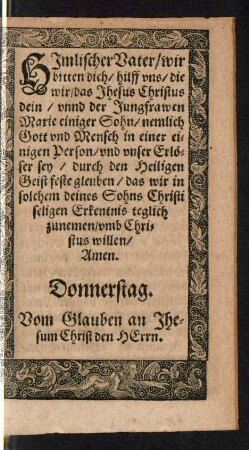 HImlischer Vater/wir
bitten dich/ hilff vns/ die
wir/das Jhesus Christus
dein / vnnd der Jungfrawen
Marie einiger Sohn/ nemlich
Gott vnd Mensch in einer ei-
nigen Person/vnd vnser Erlö-
ser sey / durch den Heiligen
Geist feste gleuben/ das wir in
solchem deines Sohns Christi
seligen Erkentnis teglich
zunemen/vmb Chri-
stus willen/
Amen.
Donnerstag.
Vom Glauben an Jhe-
sum Christ den HErrn.